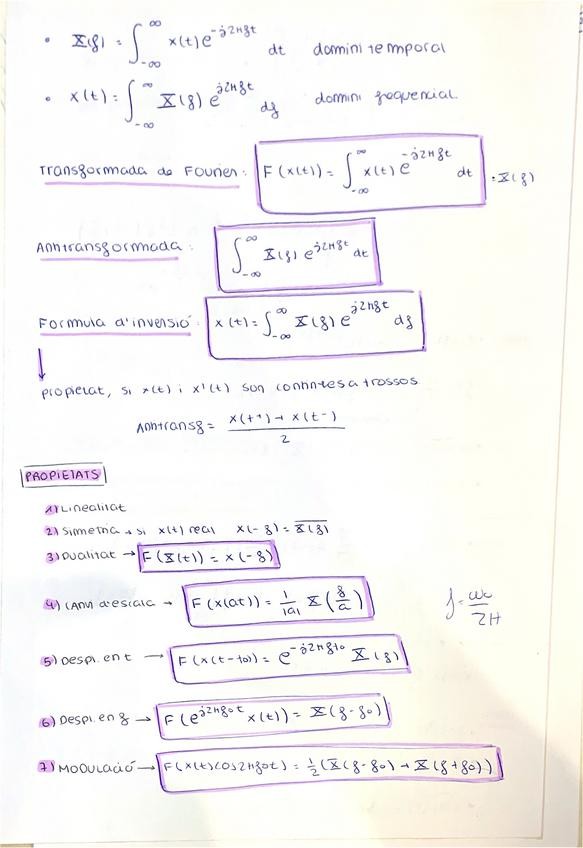 • X(f) = ∫_{-∞}^{∞} x(t) e^{-j2πft} dt domini temporal
• x(t) = ∫_{-∞}^{∞} X(f) e^{j2πft} df domini frequencial.
Transformada de Fourier: F(x(t)) = ∫_{-∞}^{∞} x(t) e^{-j2πft} dt = X(f)
Antitransformada: ∫_{-∞}^{∞} X(f) e^{j2πft} dt
Formula d'inversió: x(t) = ∫_{-∞}^{∞} X(f) e^{j2πft} df
↓
propietat, si x(t) i x'(t) son contintes a trossos
Antitransf = (x(t+) + x(t-))/2
PROPIETATS
1) Linealitat
2) Simetria → si x(t) real x(-f) = \overline{X(f)}
3) Dualitat → F(X(t)) = x(-f)
4) Canvi d'escala → F(x(at)) = 1/|a| X(f/a) f = ω/2π
5) Despl. en t → F(x(t-t0)) = e^{-j2πft0} X(f)
6) Despl. en f → F(e^{j2πf0t} x(t)) = X(f-f0)
7) Modulació → F(x(t)cos2πf0t) = 1/2 (X(f-f0) + X(f+f0))